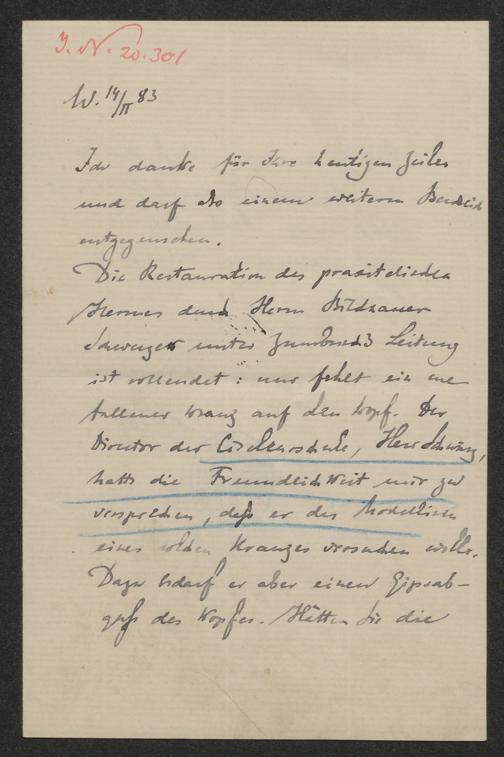 J. N. 20.301
W. 14/II 83
Ich danke für Ihre heutigen Zeilen
und darf also einem weiteren Bericht
entgegensehen.
Die Restauration des praxitelischen
Hermes durch Herrn Bildhauer
Schwerzek unter Zumbusch's Leitung
ist vollendet: nur fehlt ein me-
tallener Kranz auf den Kopf. Der
Director der Ciseleurschule, Herr Schwarz,
hatte die Freundlichkeit mir zu
versprechen, daß er das Modelliren
eines solchen Kranzes versuchen wolle.
Dazu bedarf er aber einen Gipsab-
guß des Kopfes. Hätten Sie die